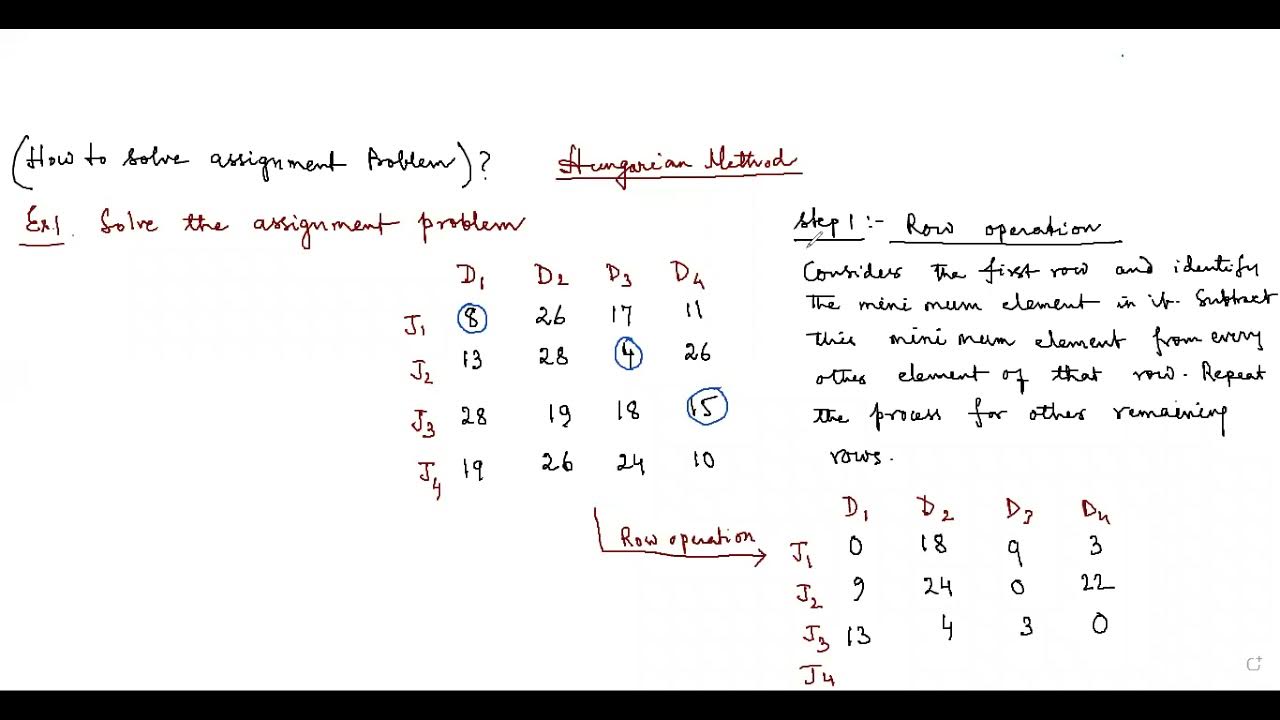 (How to solve assignment Problem)? Hungarian Method
Ex1. Solve the assignment problem
D1 D2 D3 D4
J1 8 26 17 11
J2 13 28 4 26
J3 28 19 18 15
J4 19 26 24 10
Step 1 :- Row operation
Consider the first row and identify
the minimum element in it. Subtract
this minimum element from every
other element of that row. Repeat
the process for other remaining
rows.
Row operation
D1 D2 D3 D4
J1 0 18 9 3
J2 9 24 0 22
J3 13 4 3 0
J4